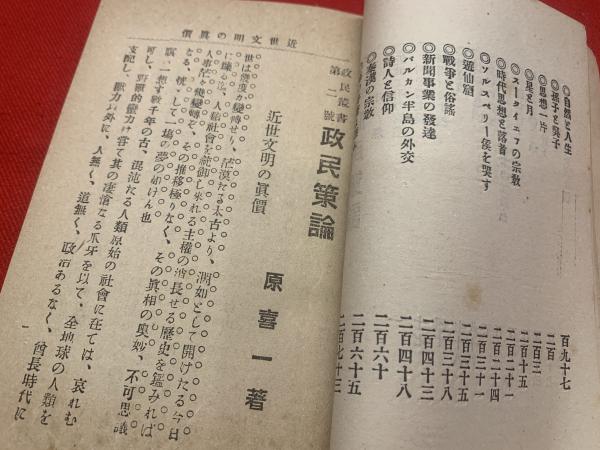 ◎自然と人生
百九十七
◎孫子と吳子
二百
◎思想一片
二百三
◎星と月
二百十五
◎スータイエフの宗敎
二百二十一
◎時代思想と落首
二百二十四
◎ソルスベリー侯を哭す
二百三十一
◎遊仙窟
二百三十八
◎戰爭と俗謠
二百四十三
◎新聞事業の發達
二百四十八
◎バルカン半島の外交
二百六十
◎詩人と信仰
二百六十五
◎秦漢の宗敎
二百七十三
近世文明の眞價
政民叢書第二號
政民策論
原喜一著
近世文明の眞價
世は幾度か變轉せり、茫漠たる太古より、濶如として開けたる今日
に至る迄、人類社會を統御し來れる主權の消長せる歷史を鑑みれば
人事茫々幾變轉ぞ、その推移極りなく、その眞相の奧妙、不可思議
恍として一塲の夢の如けん也
一想す數千年の古、混沌たる人類原始の社會に在ては、哀れむ
可し、野獸的獸力は嘗て其の凄愴なる爪牙を以て、全地球の人類を
支配し、獸力の外に、人無く、道無く、政治あるなく、酋長時代に